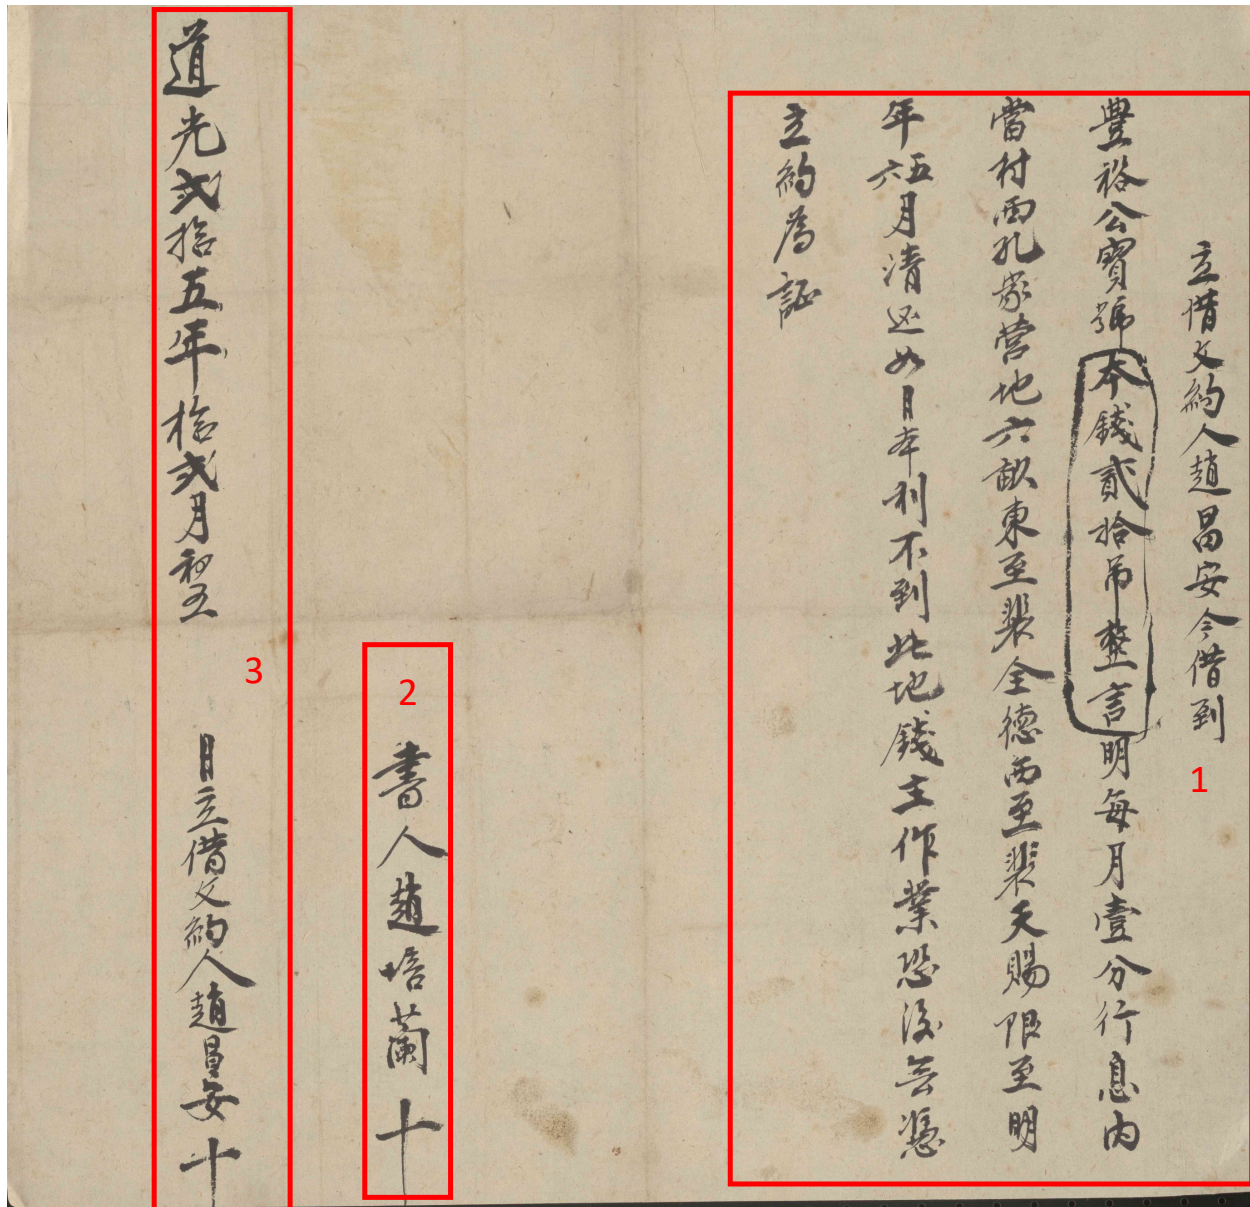 立借文約人趙昌安今借到
豊裕公寳號本錢貳拾吊整言明每月壹分行息内
當村西孔家營地六畝東至裴全德西至裴天賜限至明
年五六月清还如月本利不到此地錢主作業恐後無憑
立約為証
1
2
書人趙培蘭十
3
道光弍拾五年拾弍月初五日立借文約人趙昌安十